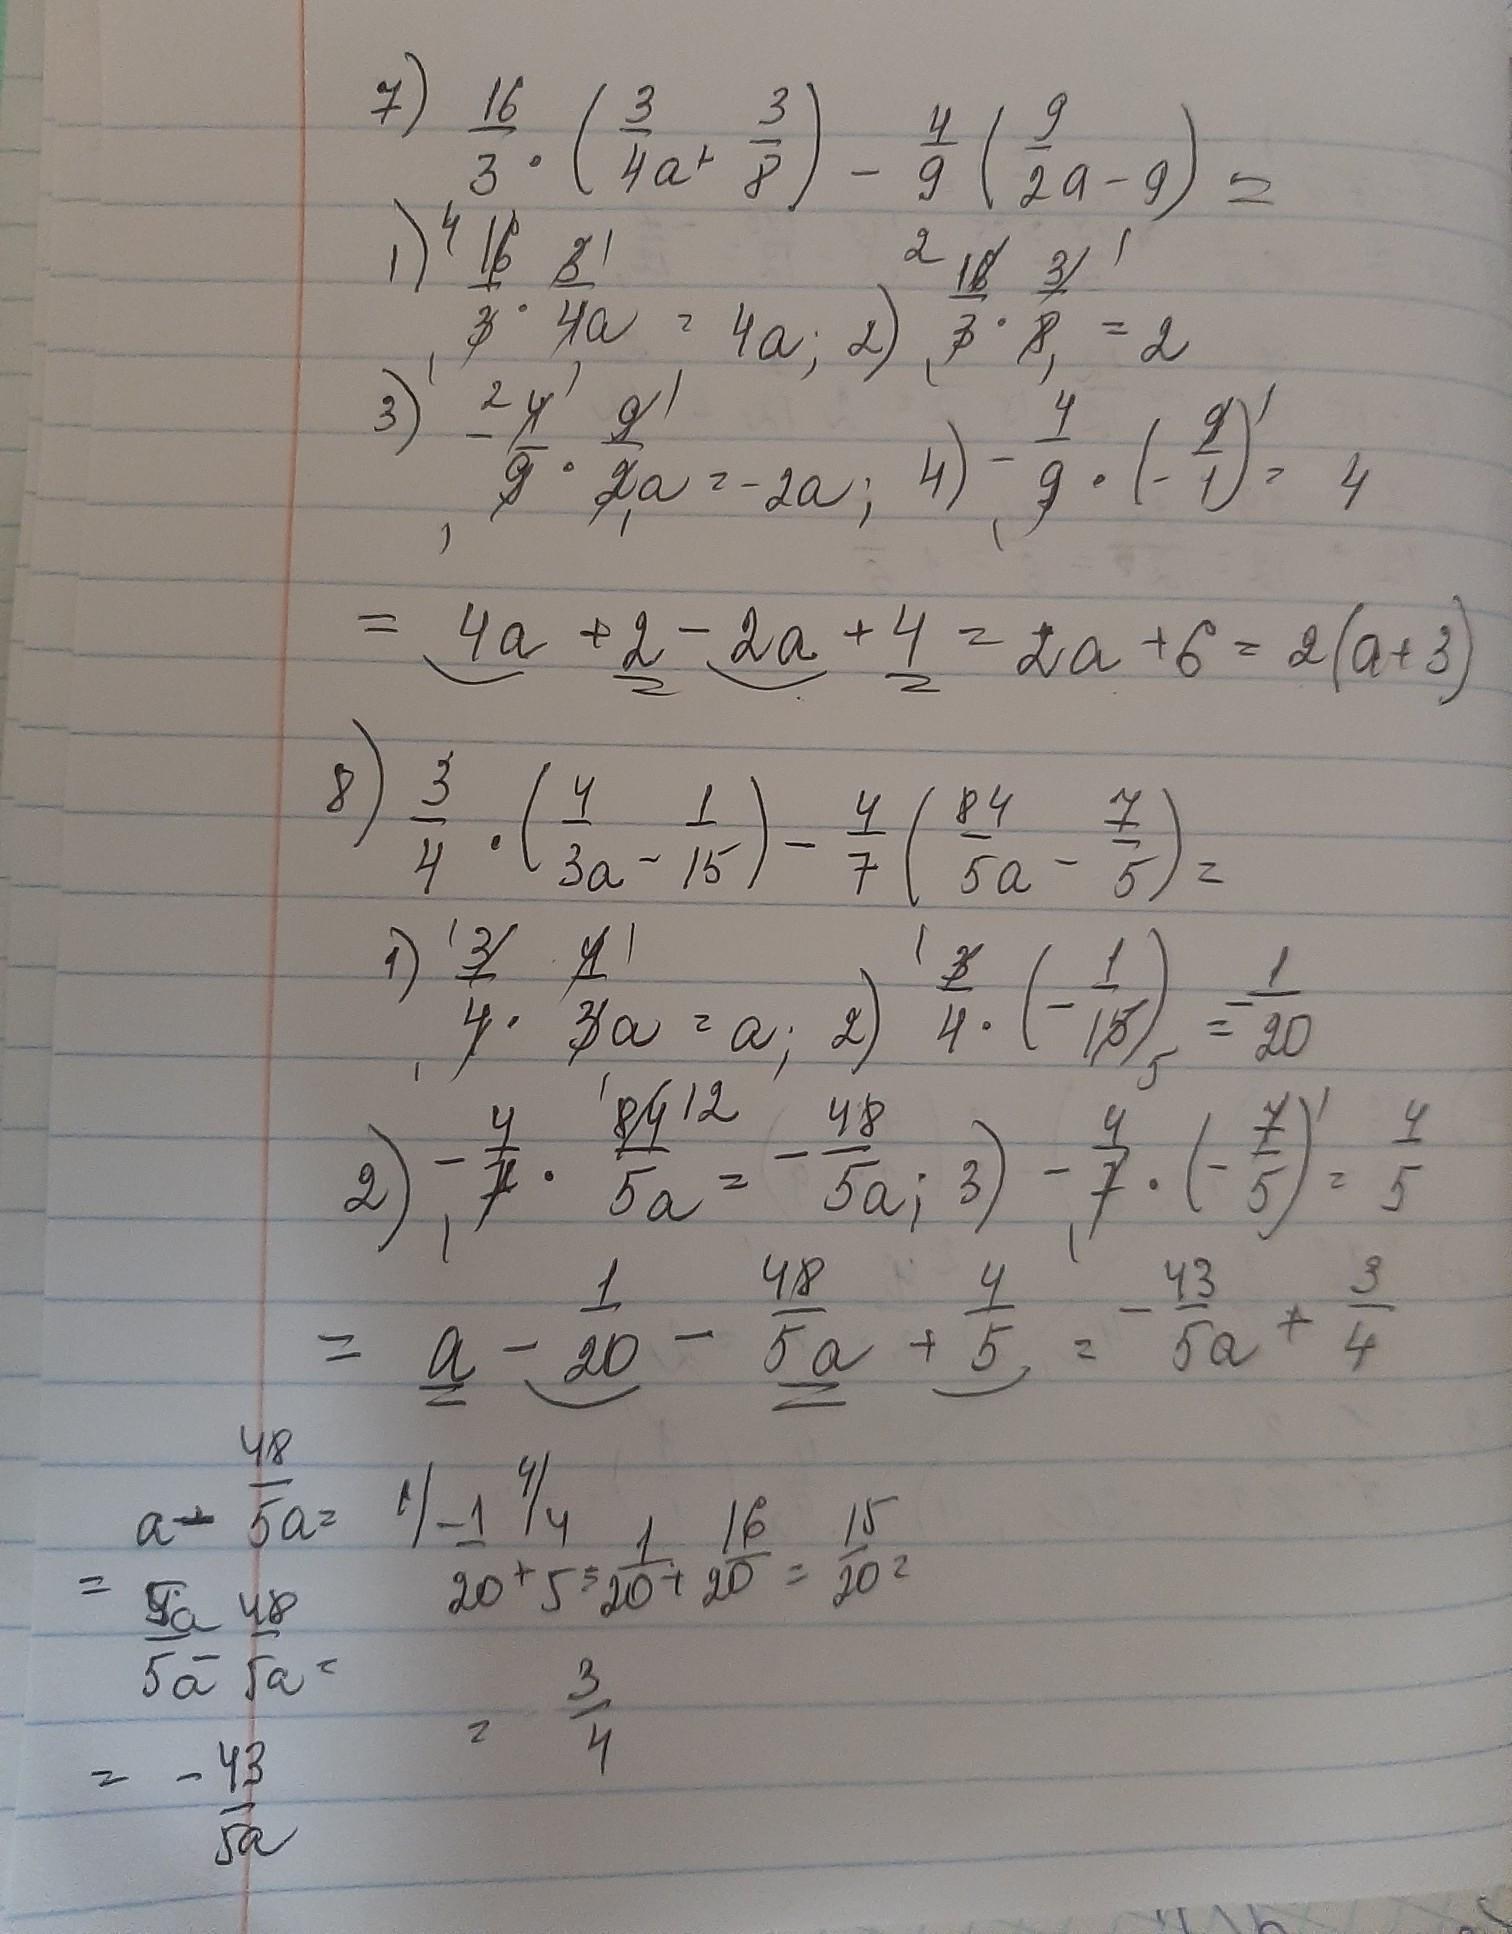 7) 16/3 · (3/4a + 3/8) - 4/9 (9/2a - 9) =
1) 16/3 · 3/4a = 4a; 2) 16/3 · 3/8 = 2
3) -4/9 · 9/2a = -2a; 4) -4/9 · (-9/1) = 4
= 4a + 2 - 2a + 4 = 2a + 6 = 2(a+3)
8) 3/4 · (4/3a - 1/15) - 4/7 (84/5a - 7/5) =
1) 3/4 · 4/3a = a; 2) 3/4 · (-1/15) = -1/20
2) -4/7 · 84/5a = -48/5a; 3) -4/7 · (-7/5) = 4/5
= a - 1/20 - 48/5a + 4/5 = -43/5a + 3/4
a - 48/5a = -1/20 + 4/5 = 1/20 + 16/20 = 15/20 =
= 5a/5a - 48/5a = = 3/4
= -43/5a